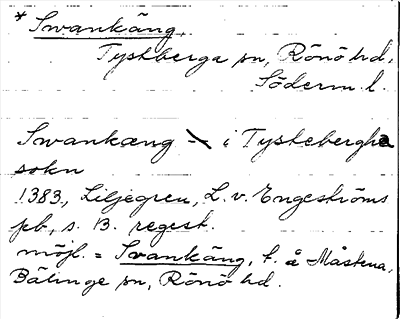 * Swankäng,
Tystberga sn, Rönö hd,
Söderm. l.
Swankæng - i Tystebergha
sokn
1383, Liljegren, L. v. Engeströms
pb, s. B. regest.
möjl. = Svankäng, t. å Måstena,
Bälinge sn, Rönö hd.